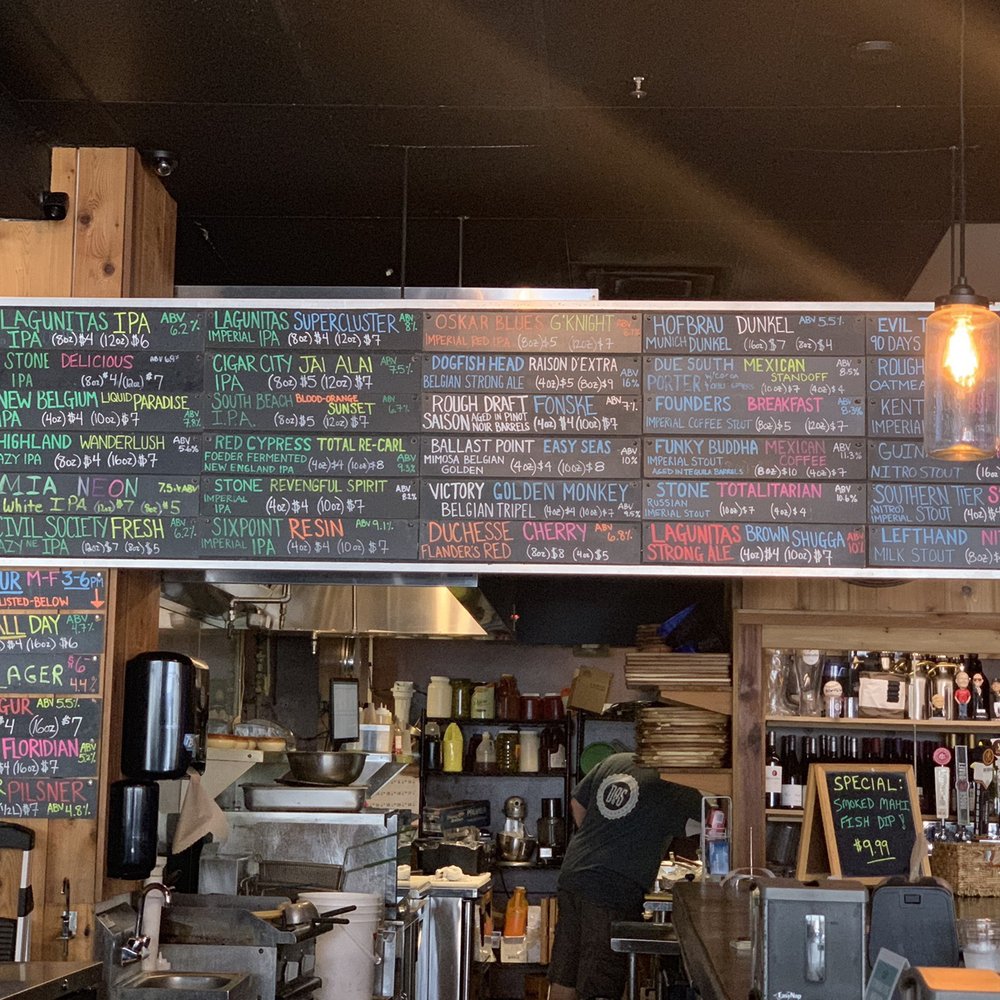 LAGUNITAS IPA ABV 6.2%
IPA (8oz) $4 (12oz) $6
STONE DELICIOUS ABV
IPA (8oz) $4/(12oz) $7
NEW BELGIUM LIQUID PARADISE ABV 7.8%
IPA (4oz) $4 (10oz) $7
HIGHLAND WANDERLUSH ABV 5.6%
AZY IPA (8oz) $4 (16oz) $7
MIA NEON 7.5% ABV
White IPA (12oz) $7 (8oz) $5
CIVIL SOCIETY FRESH ABV 6.2%
AZY NE IPA (12oz) $7 (8oz) $5
LAGUNITAS SUPERCLUSTER ABV 8%
IMPERIAL IPA (8oz) $4 (12oz) $7
CIGAR CITY JAI ALAI ABV 7.5%
IPA (8oz) $5 (12oz) $7
SOUTH BEACH BLOOD-ORANGE SUNSET ABV
I.P.A. (8oz) $5 (12oz) $7
RED CYPRESS TOTAL RE-CARL
FOEDER FERMENTED (4oz) $4 (10oz) $8 ABV
NEW ENGLAND IPA 9.3%
STONE REVENGFUL SPIRIT ABV
IMPERIAL IPA (4oz) $4 (10oz) $7
SIXPOINT RESIN ABV 9.1%
IMPERIAL IPA (4oz) $4 (10oz) $7
OSKAR BLUES G'KNIGHT ABV
IMPERIAL RED IPA (8oz) $5 (12oz) $7
DOGFISH HEAD RAISON D'EXTRA ABV
BELGIAN STRONG ALE (4oz) $5 (8oz) $9 16%
ROUGH DRAFT FONSKE ABV 7%
SAISON AGED IN PINOT NOIR BARRELS (4oz) $4 (10oz) $7
BALLAST POINT EASY SEAS ABV 10%
MIMOSA BELGIAN GOLDEN (4oz) $4 (10oz) $8
VICTORY GOLDEN MONKEY
BELGIAN TRIPEL (4oz) $4 (10oz) $7 ABV 9.5%
DUCHESSE CHERRY ABV 6.8%
FLANDER'S RED (8oz) $8 (4oz) $5
HOFBRAU DUNKEL ABV 5.5%
MUNICH DUNKEL (16oz) $7 (8oz) $4
DUE SOUTH MEXICAN STANDOFF ABV 8.5%
PORTER (10oz) $7 (4oz) $4
FOUNDERS BREAKFAST ABV 8.3%
IMPERIAL COFFEE STOUT (8oz) $5 (12oz) $7
FUNKY BUDDHA MEXICAN COFFEE ABV 11.3%
IMPERIAL STOUT
AGED IN TEQUILA BARRELS (8oz) $10 (4oz) $7
STONE TOTALITARIAN ABV 10.6%
RUSSIAN IMPERIAL STOUT (10oz) $7 (4oz) $4
LAGUNITAS BROWN SHUGGA ABV 10%
STRONG ALE (4oz) $4 (10oz) $7
EVIL T
90 DAYS
ROUGH
OATMEA
KENT
IMPERIAL
GUIN
NITRO STOUT (16oz)
SOUTHERN TIER S
(NITRO) IMPERIAL STOUT (4oz)
LEFTHAND NI
MILK STOUT (8oz) $
UR M-F 3-6PM
LISTED-BELOW
ALL DAY ABV 4.7%
$4 (16oz) $6
LAGER $6
4.4%
GUR ABV 5.5%
$4 (16oz) $7
FLORIDIAN ABV 5.2%
$4 (16oz) $7
PILSNER
(1/2L) $7 ABV 4.8%
SPECIAL:
SMOKED MAHI
FISH DIP!
$9.99
EasyNap